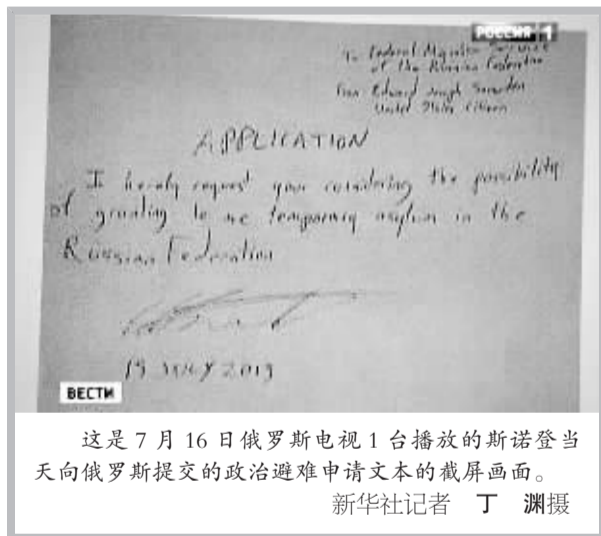 РОССИЯ 1
To Federal Migration Service
of the Russian Federation
From Edward Joseph Snowden
United States Citizen
APPLICATION
I hereby request your considering the possibility
of granting to me temporary asylum in the
Russian Federation
JULY 2013
ВЕСТИ
这是7月16日俄罗斯电视1台播放的斯诺登当
天向俄罗斯提交的政治避难申请文本的截屏画面。
新华社记者 丁 渊摄